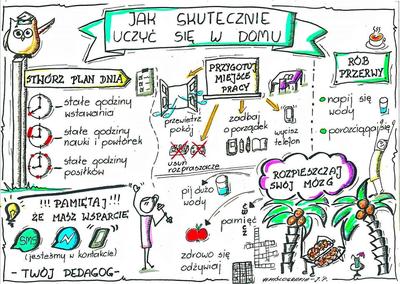 JAK SKUTECZNIE
UCZYĆ SIĘ W DOMU
STWÓRZ PLAN DNIA
stałe godziny
wstawania
stałe godziny
nauki i powtórek
stałe godziny
posiłków
PRZYGOTUJ
MIEJSCE
PRACY
przewietrz
pokój
usuń
rozpraszacze
zadbaj
o porządek
wycisz
telefon
RÓB
PRZERWY
napij się
wody
porozciągaj się
!!! PAMIĘTAJ !!!
ŻE MASZ WSPARCIE
SMS
(jesteśmy w kontakcie)
- TWÓJ PEDAGOG -
ROZPIESZCZAJ
SWÓJ MÓZG
pij dużo
wody
zdrowo się
odżywiaj
pamięć